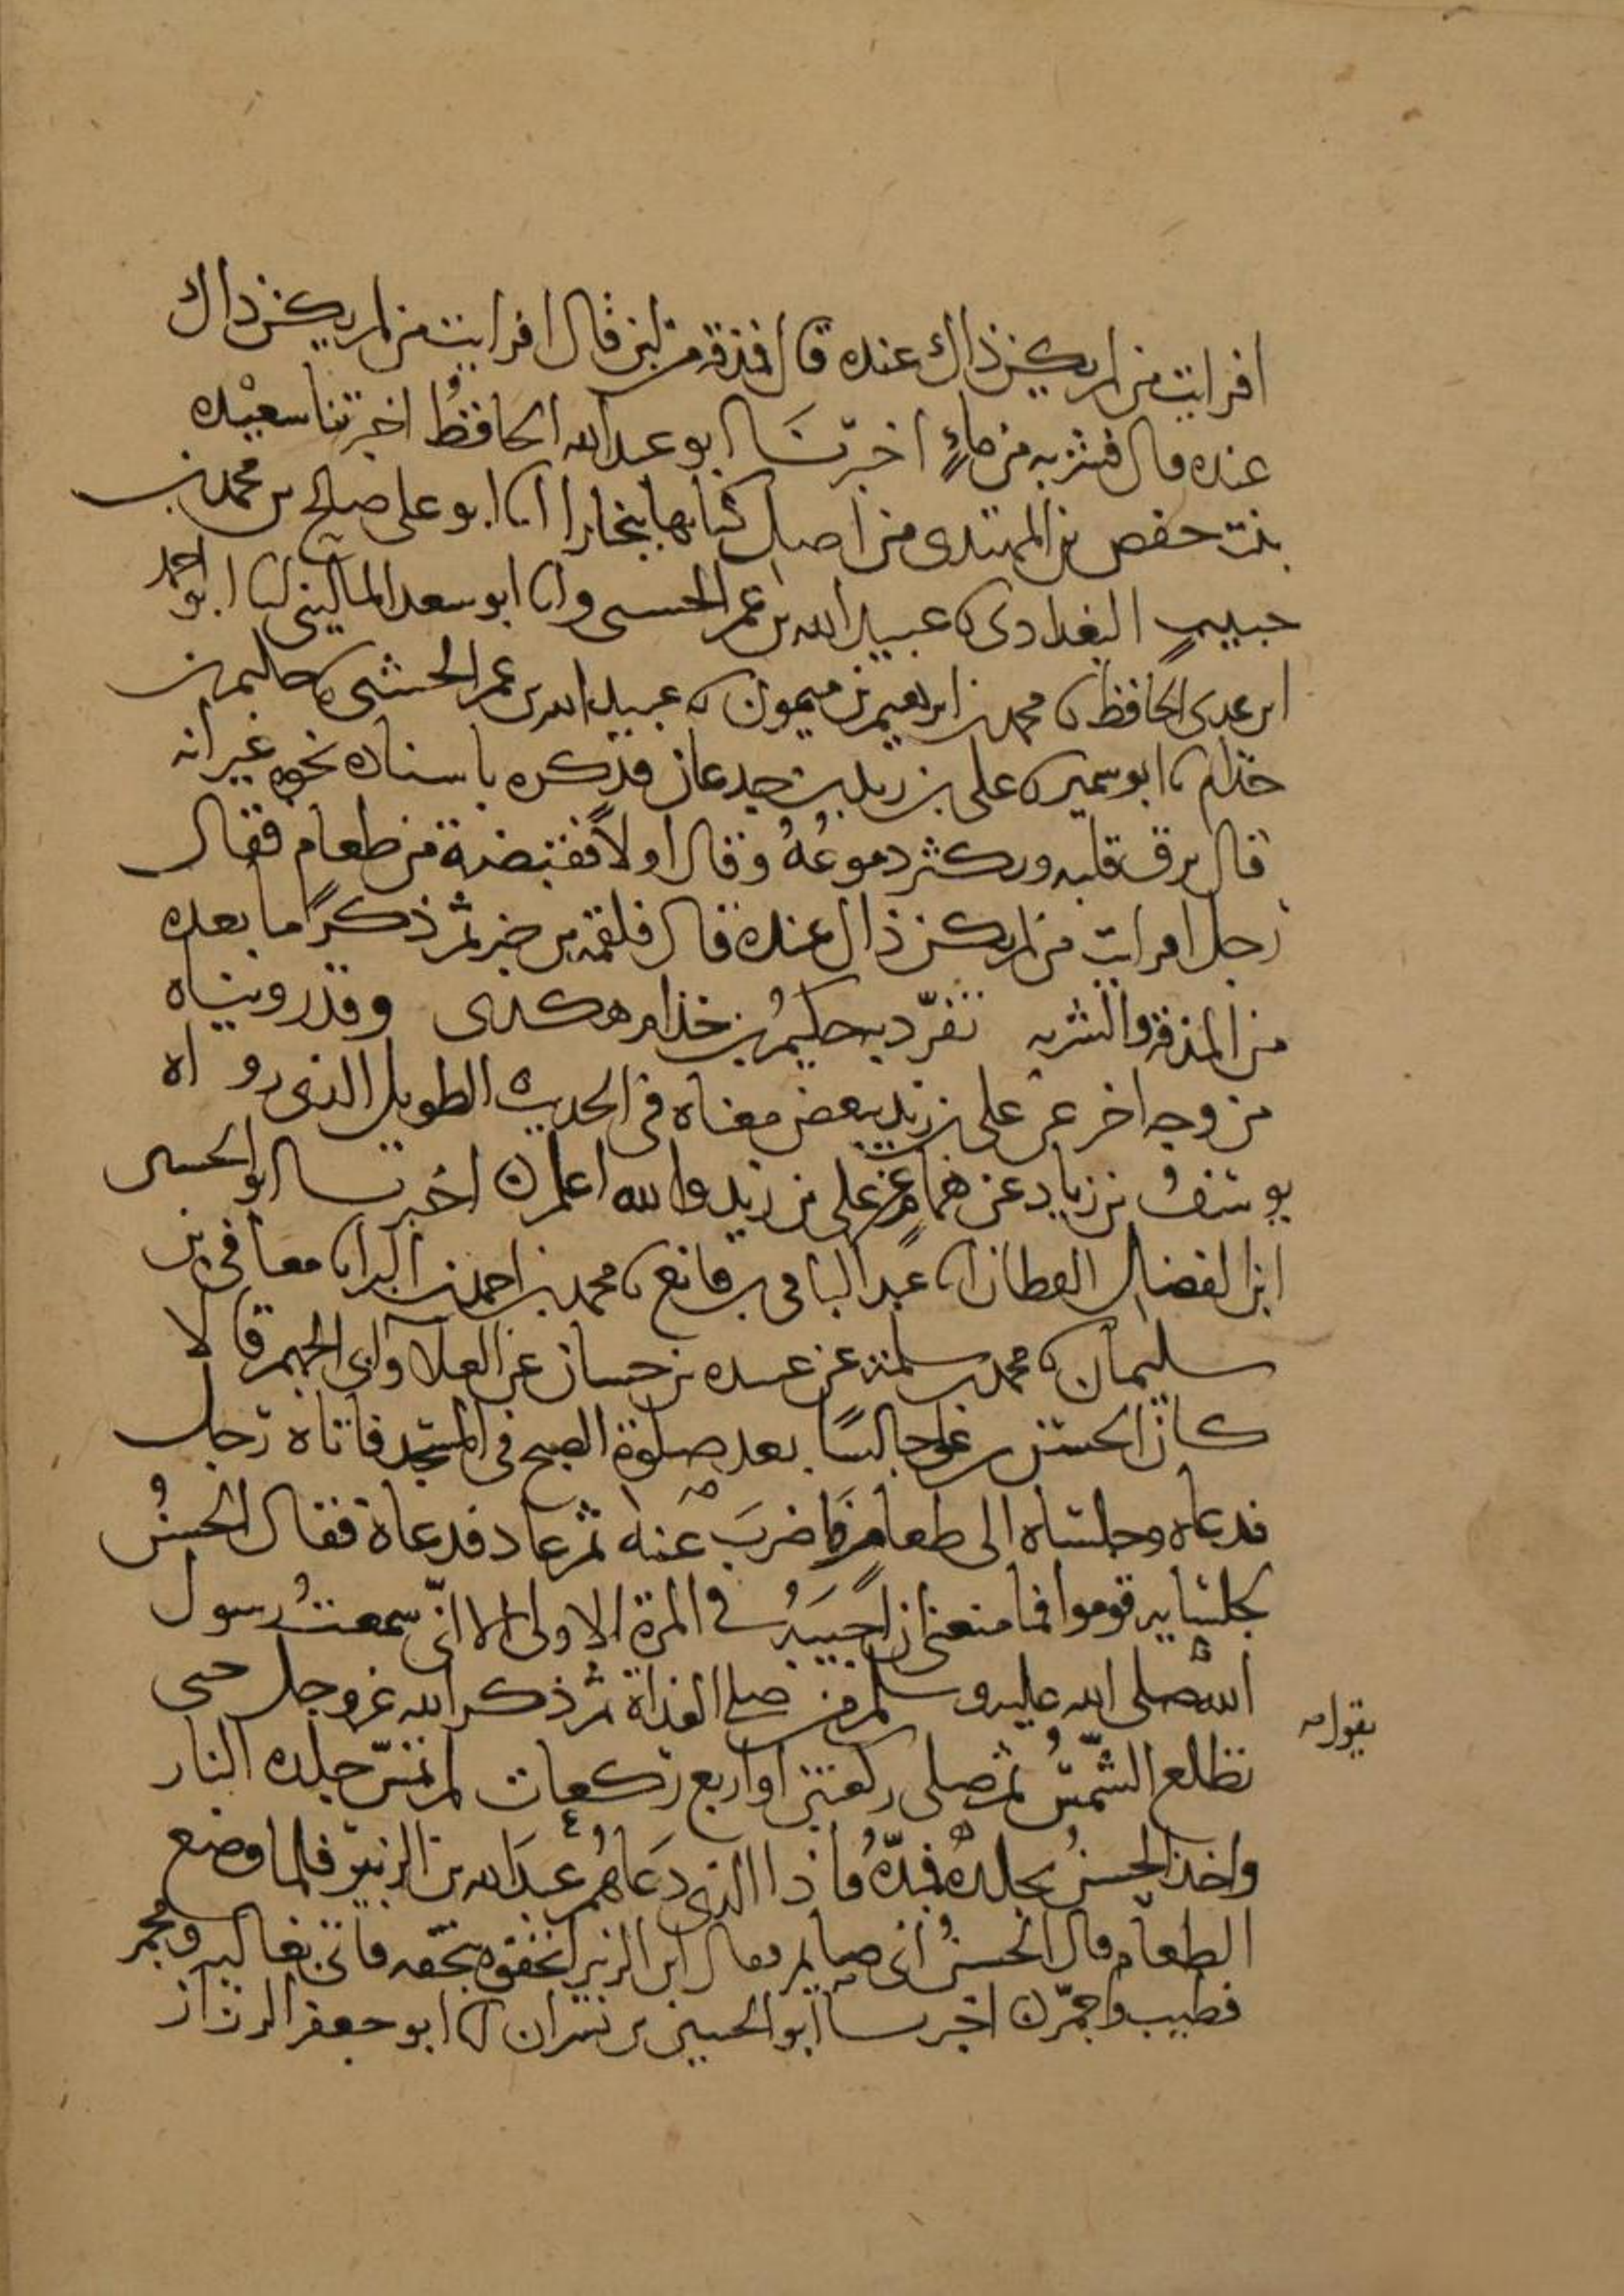 افرايت من لم يكن ذاك عنده قال فمذقة من لبن قال افرايت من لم يكن ذاك
عنده قال فشربه من ماءٍ اخبرنَا ابو عبدالله الحافظُ اخبرتنا سعيْده
بنت حفص بن المهتدى من اصل كتابها ببخارا انا ابو على صالح بن محمد بن
حبيبٍ البغدادى نا عبيدالله بن عمر الحسمى وانا ابو سعد المالينى انا ابو احمد
ابن عدى الحافظ نا محمد بن ابرهيم بن ميمون نا عبيدالله بن عمر الحشمى نا حكيم بن
خذام نا ابو سمير نا على بن زيد بن جدعان فذكره باسناده نحوه غير انه
قال يرق قلبه ويكثر دموعُهُ وقال اولاً فقبضة من طعام فقال
رجل افرايت من لم يكن ذاك عنده قال فلقمة من خبز ثم ذكر ما بعده
من المذقة والشربه تفرّد به حكيمُ بن خذام هكذى وقد رويناه
من وجه اخر عن على بن زيد ببعض معناه فى الحديث الطويل الذى رواه
يوسفُ بن زياد عن همامٍ عن على بن زيد والله اعلم اخبرنا ابو الحسين
ابن الفضل القطان انا عبد الباقى بن قانع نا محمد بن احمد بن البرا نا معافى بن
سليمان نا محمد بن سلمة عن عبيده بن حسان عن العلا وابى الجهم قالا
كان الحسن بن على جالسًا بعد صلوة الصبح فى المسجد فاتاه رجل
فدعاه وجلساه الى طعام فَاضربَ عنهُ ثم عاد فدعاة فقال الحسنُ
لجلسايه قوموا فما منعنى ان اُجيبَهُ فى المرة الاولى الا انّى سمعتُ رسول
الله صلى الله عليه وسلم من صلى الغداة ثم ذكر الله عز وجل حتى
يقول
تطلع الشّمسُ ثم صلى ركعتين او اربع ركعات لم تمسّ جلده النار
واخذ الحسنُ بجلدهُ فمدّهُ فاذا الذى دعَاهُم عبدَالله بن الزبير فلما وضع
الطعام قال الحسنُ انى صايم فقال ابن الزبير اتحفوه بتحفه فاتى بغاليه ومجمر
فطيب واجمر اخبرنا ابو الحسين بن بشران انا ابو جعفر الرزاز